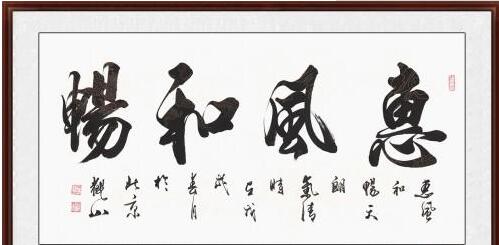 惠風和暢
惠風
和
暢天
朗
氣清
時
在戊
戌
春月
於
北京
觀山